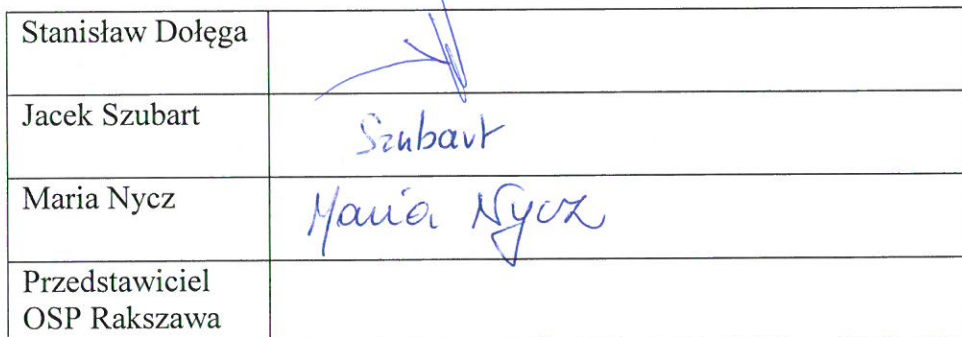 Stanisław Dołęga
Jacek Szubart
Szubart
Maria Nycz
Maria Nycz
Przedstawiciel
OSP Rakszawa